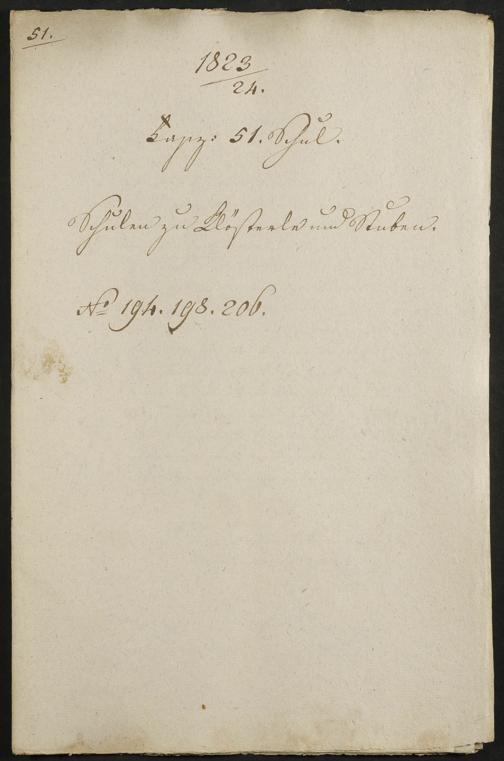 51.
1823
24.
Fasz: 51. Schul.
Schulen zu Klösterle und Stuben.
No 194. 198. 206.